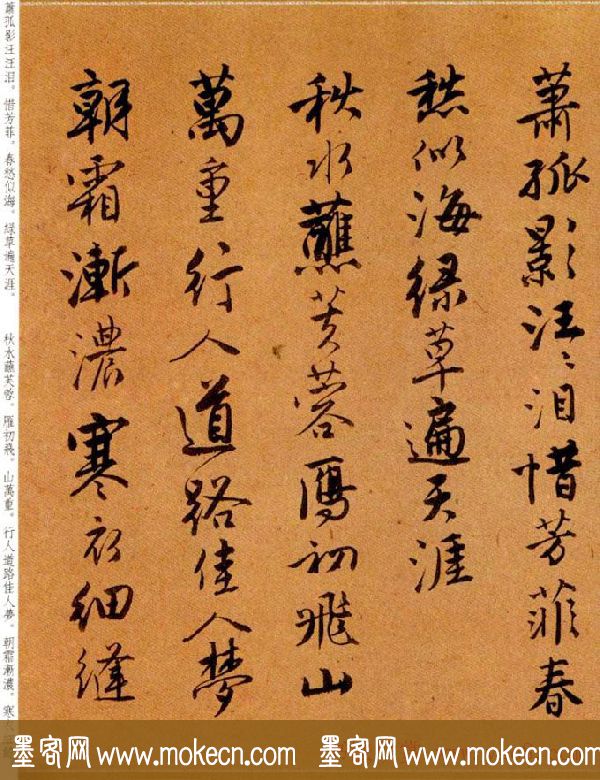 蕭孤影汪〻泪惜芳菲春
愁似海緑草遍天涯
秋水蘸芙蓉鴈初飛山
萬重行人道路佳人夢
朝霜漸濃寒衣細縫
蕭孤影汪汪泪。惜芳菲。春愁似海。緑草遍天涯。 秋水蘸芙蓉。雁初飛。山萬重。行人道路佳人夢。朝霜漸濃。寒
墨客网 www.mokecn.com 墨客网 www.mokecn.com